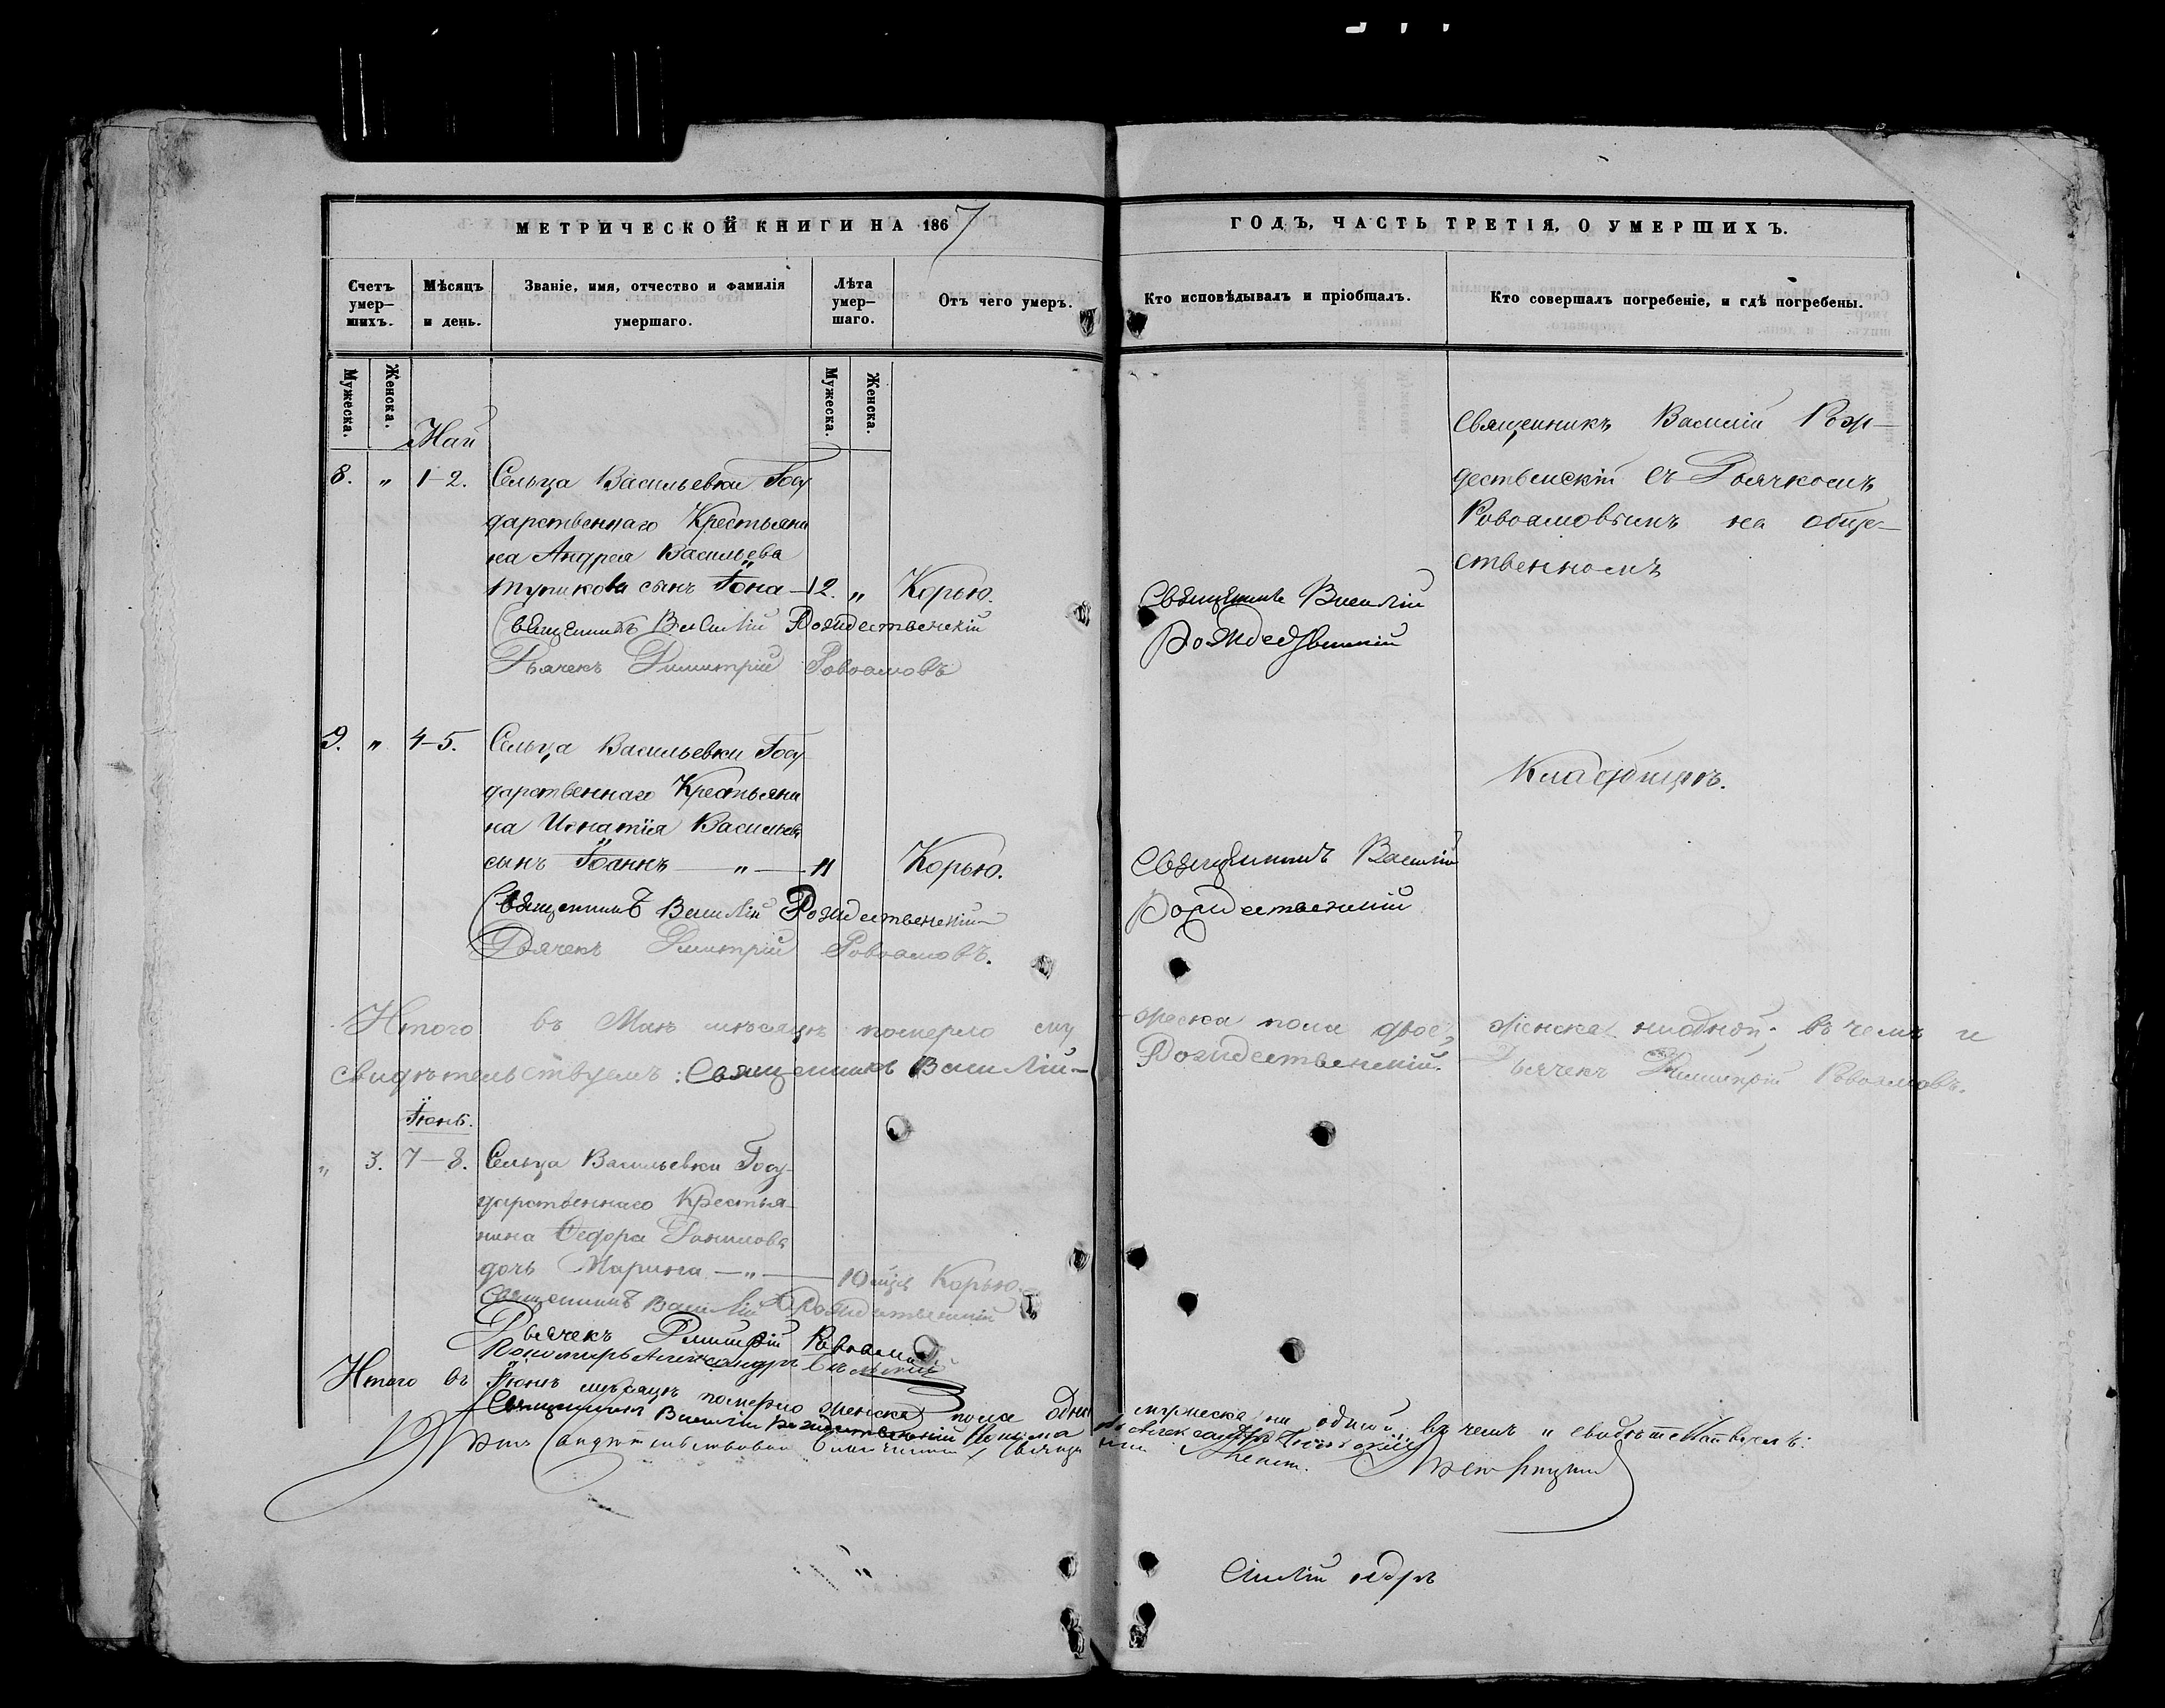 МЕТРИЧЕСКОЙ КНИГИ НА 1867
ГОДЪ, ЧАСТЬ ТРЕТІЯ, О УМЕРШИХЪ.
Счетъ умер—шихъ.
Мѣсяцъ и день.
Званіе, имя, отчество и фамилія умершаго.
Лѣта умер—шаго.
Отъ чего умеръ.
Кто исповѣдывалъ и пріобщалъ.
Кто совершалъ погребеніе, и гдѣ погребены.
Мужеска.
Женска.
Мужеска.
Женска.
Май
8. " 1-2. Сельца Васильевки Госу
дарственнаго Крестьяни
на Андрея Васильева
сынъ Іона — 12. " Корью.
Священникъ Василій Рождественскій
Дьячекъ Димитрій Ровоамовъ
Священникъ Василій
Рождественскій
Священникъ Василій Рож—
дественскій съ Дьячкомъ
Ровоамовымъ на обще—
ственномъ
9. " 4-5. Сельца Васильевки Госу
дарственнаго Крестьяни
на Игнатія Васильева
сынъ Іоаннъ — " — 11 Корью.
Священникъ Василій Рождественскій
Дьячекъ Димитрій Ровоамовъ.
Священникъ Василій
Рождественскій
Кладбищѣ.
Итого въ Маѣ мѣсяцѣ померло му
жеска пола двое, женска ниодной; въ чемъ и
свидѣтельствуемъ: Священникъ Василій—
Рождественскій. Дьячекъ Димитрій Ровоамовъ.
Іюнь.
" 3. 7-8. Сельца Васильевки Госу-
дарственнаго Крестья-
нина Ѳедора Данилова
дочь Марина — " — 10 мцъ Корью.
Священникъ Василій Рождественскій
Дьячекъ Димитрій Ровоамовъ
Пономарь Александръ
Итого въ Іюнѣ мѣсяцѣ померло женска пола одна
мужеска ни одной, въ чемъ и свидѣтельствуемъ:
Священникъ Василій Рождественскій